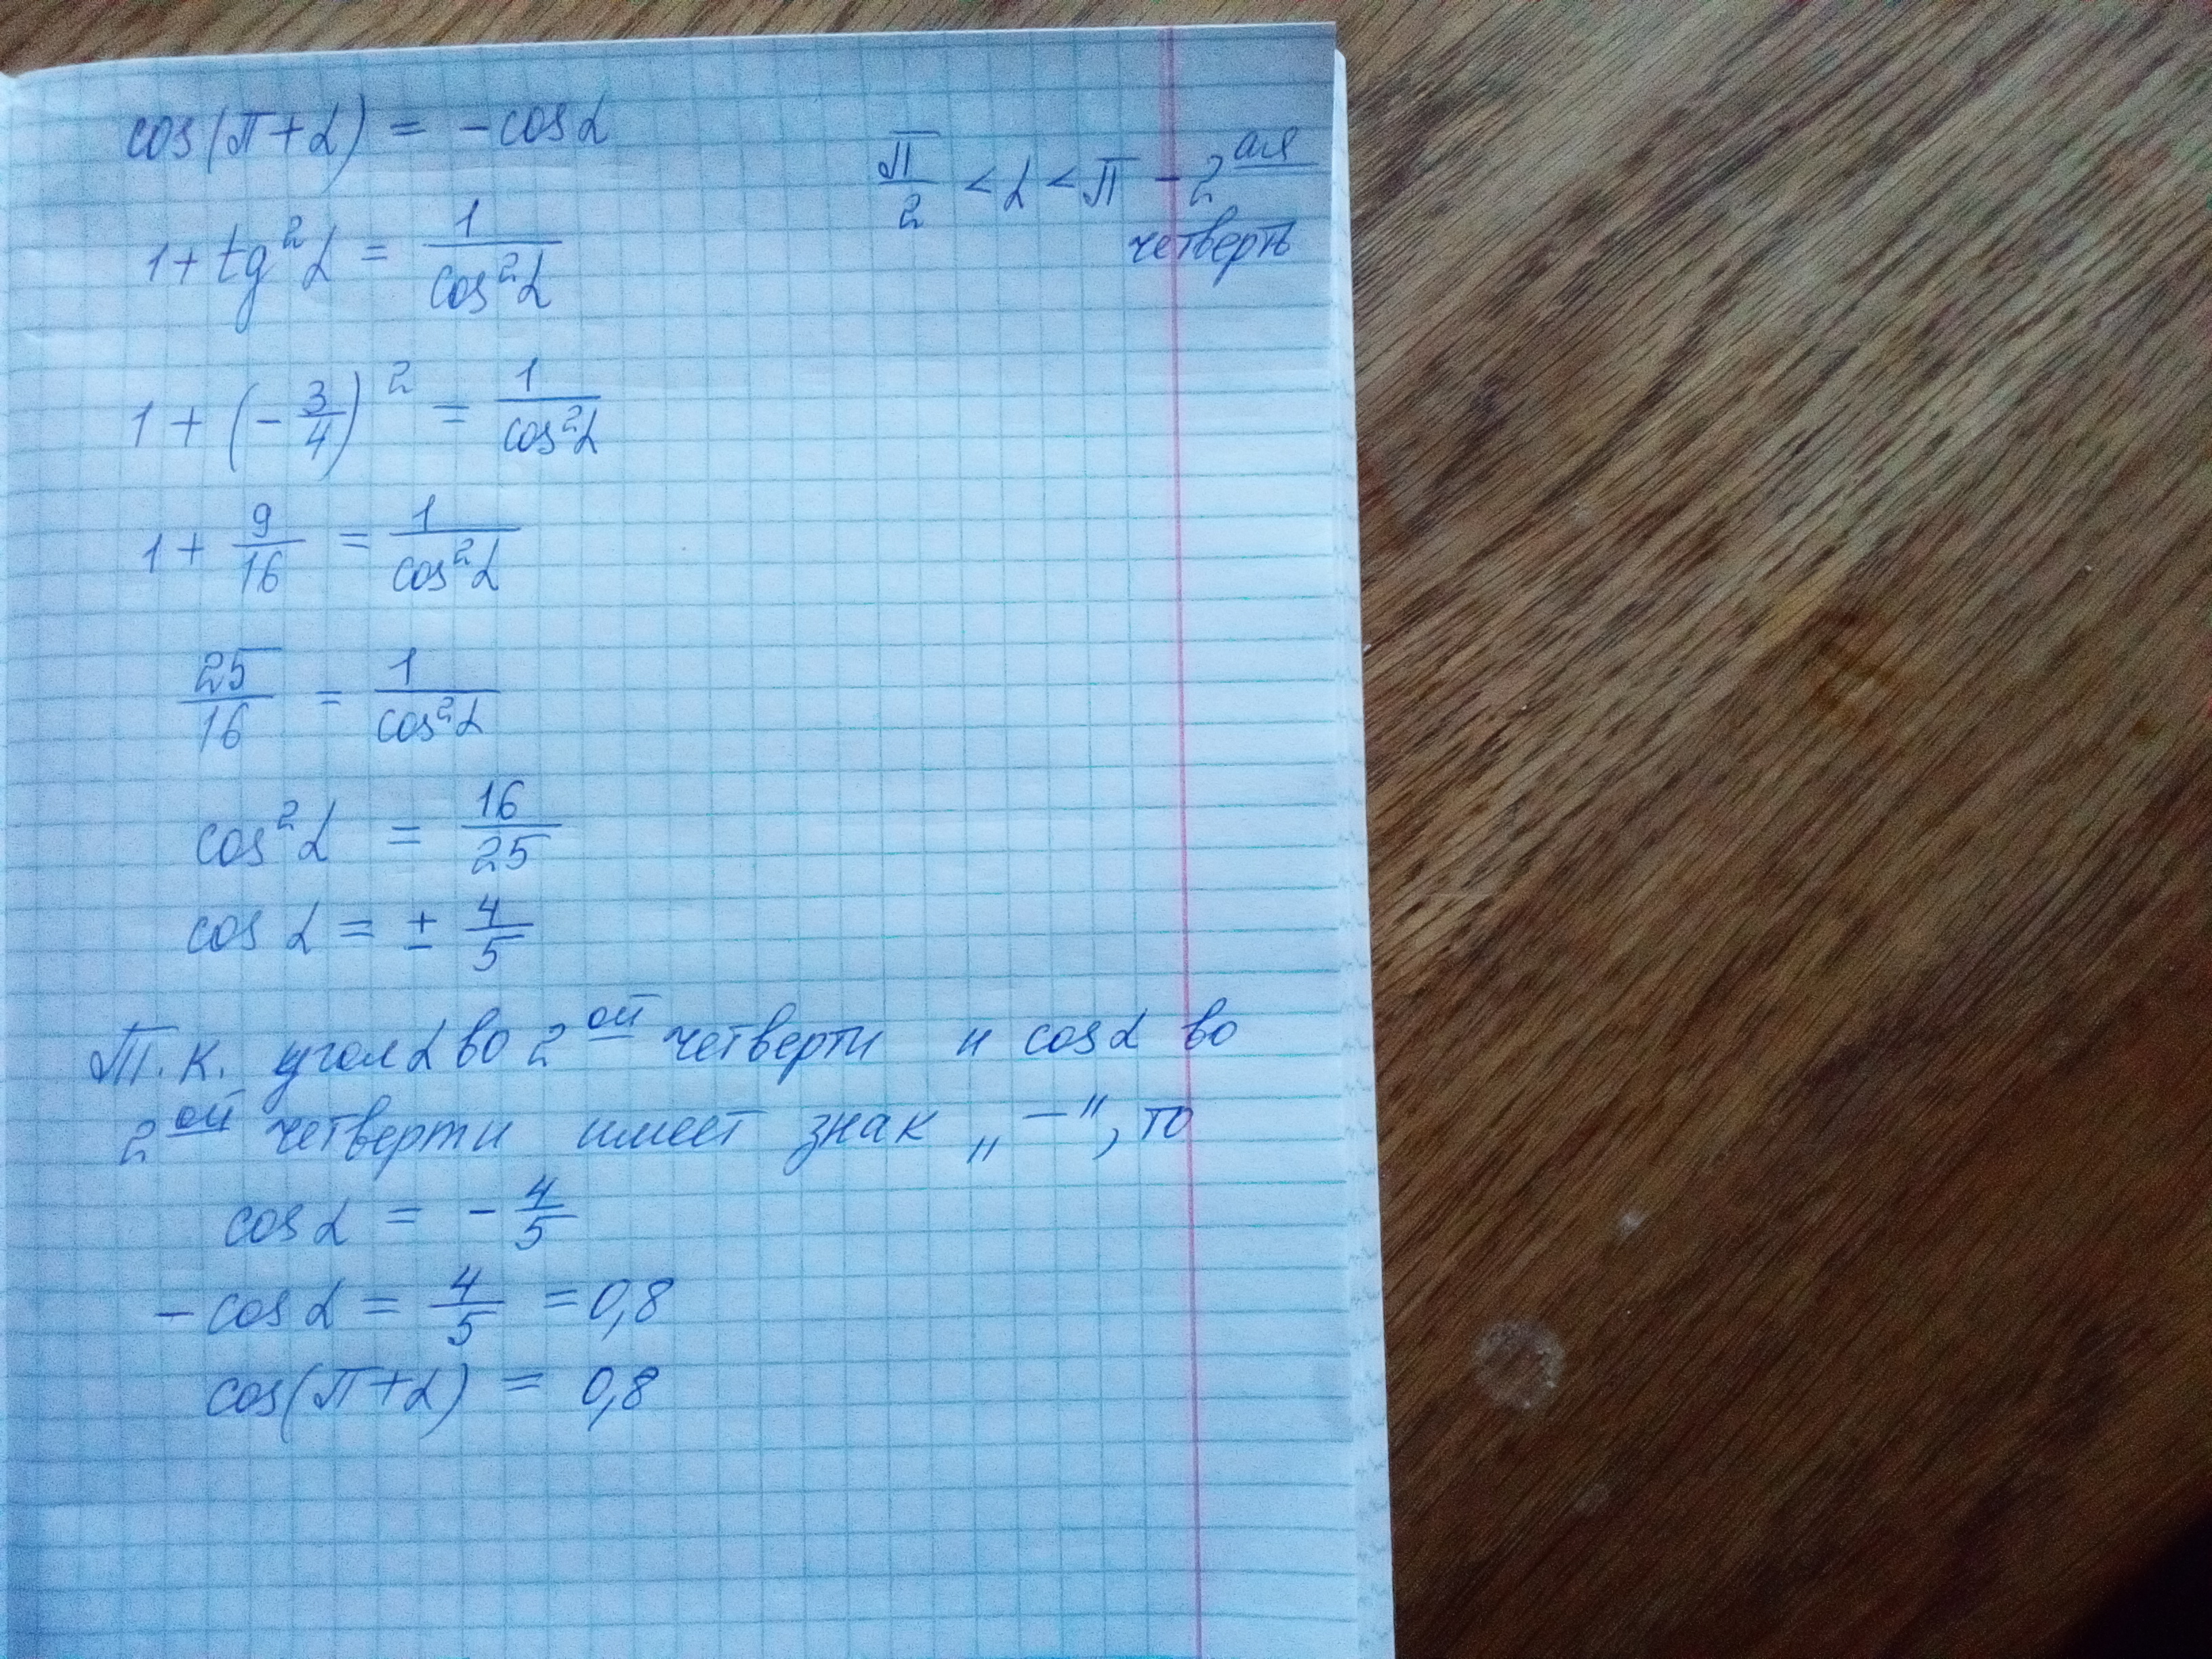 cos(π+α) = -cosα
π/2 < α < π - 2ая
четверть
1 + tg²α = 1/cos²α
1 + (-3/4)² = 1/cos²α
1 + 9/16 = 1/cos²α
25/16 = 1/cos²α
cos²α = 16/25
cos α = ± 4/5
Т.к. угол α во 2ой четверти и cosα во
2ой четверти имеет знак „—“, то
cosα = - 4/5
- cosα = 4/5 = 0,8
cos(π+α) = 0,8